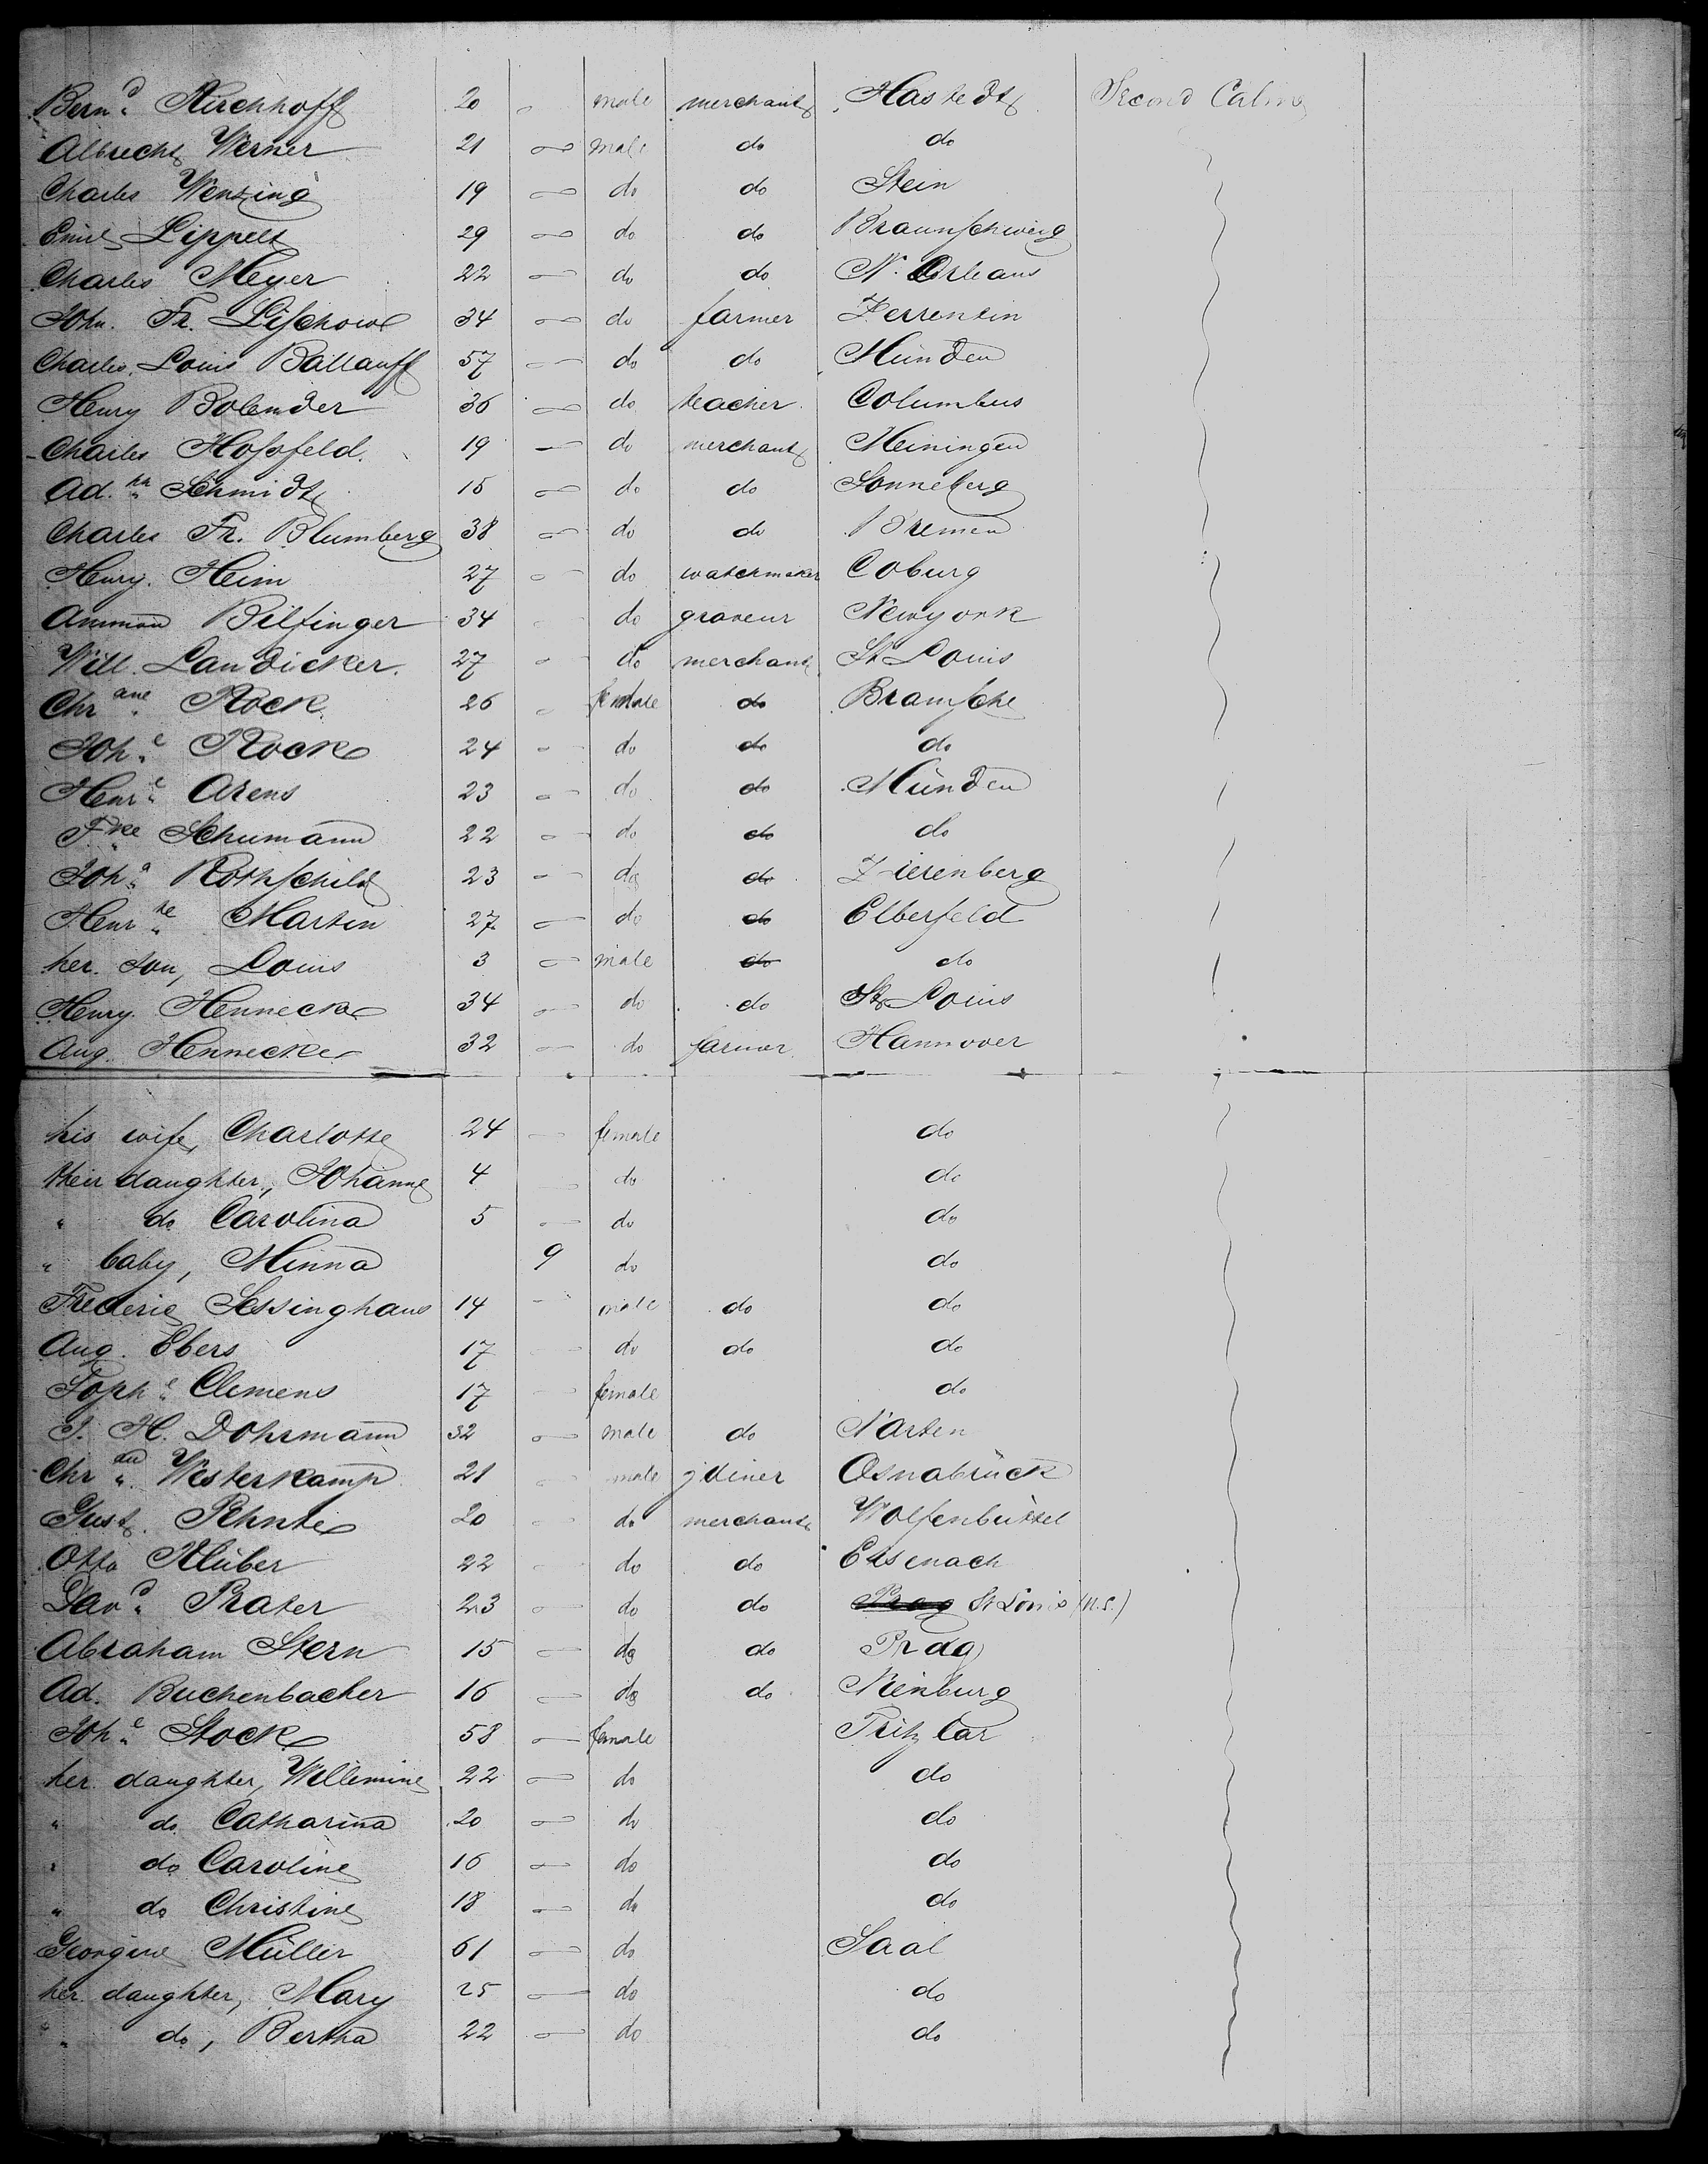 Bernd. Kirchhoff 20 male merchant Hastedt Second Cabin
Albrecht Werner 21 male do do
Charles Wenzing 19 do do Stein
Emil Lippelt 29 do do Braunschweig
Charles Meyer 22 do do N. Orleans
John. Fr. Lischow 34 do farmer Zerrentin
Charles Louis Ballauff 57 do do Münden
Henry Bolender 36 do teacher Columbus
Charles Hossfeld. 19 do merchant Meiningen
Ad. Schmidt 15 do do Sonneberg
Charles Fr. Blumberg 38 do do Bremen
Henry. Heim 27 do watchmaker Coburg
Amman Bilfinger 34 do graveur Newyork
Will. Landicker. 27 do merchant St Louis
Chrane. Rock 26 female do Bramsche
Johe. Rock 24 do do do
Henre. Arens 23 do do Münden
Fke Schumann 22 do do do
Joha. Rothschild 23 do do Zierenberg
Henrte Marten 27 do do Elberfeld
her. son, Louis 3 male do do
Henry. Hennecke 34 do do St. Louis
Aug. Hennecke 32 do farmer Hannover
his wife, Charlotte 24 female do
their daughter, Johanne 4 do do
" do Carolina 5 do do
" baby, Minna 9 do do
Frederic Sessinghaus 14 male do do
Aug. Ebers 17 do do do
Sophe. Clemens 17 female do
J. H. Dohrmann 32 male do Narten
Chran. Westerkamp 21 male Osnabrück
Gust. Rehnte 20 do merchant Wolfenbüttel
Otto Klüber 22 do do Eisenach
Davd. Prater 23 do do Prag St Louis (N.S.)
Abraham Stern 15 do do Prag
Ad. Buchenbacher 16 do do Nienburg
Johe. Stock 58 female Fritzlar
her daughter, Willemine 22 do do
" do Catharina 20 do do
" do Caroline 16 do do
" do Christine 18 do do
Georgine Müller 61 do Saal
her daughter, Mary 25 do do
" do, Bertha 22 do do